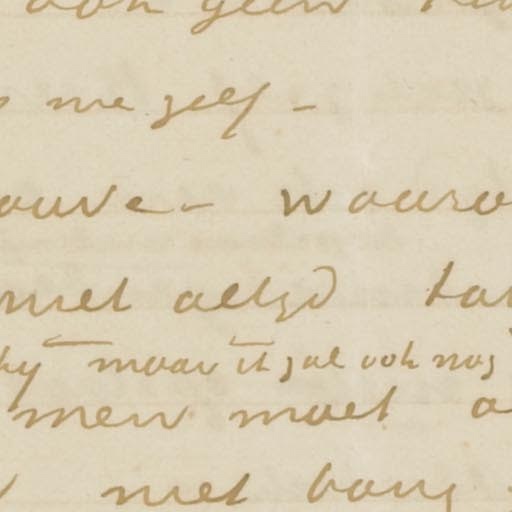 ook geen
me zelf -
Mauve - waaro
niet altijd
hij maar ik zal ook nog
men moet
niet bang